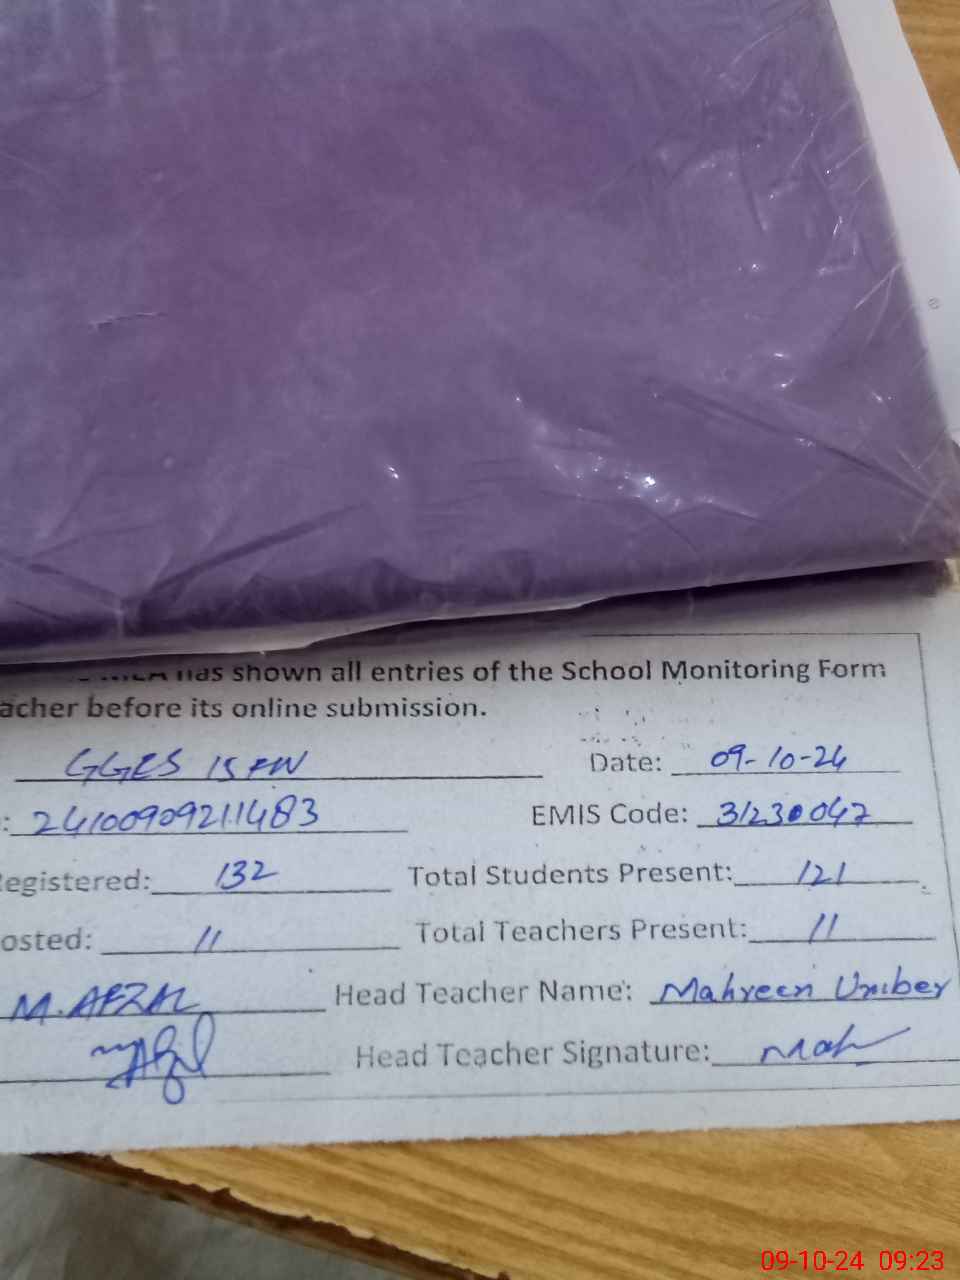 has shown all entries of the School Monitoring Form
acher before its online submission.
GGES 15 FW Date: 09-10-24
: 24100909211483 EMIS Code: 31230047
Registered: 132 Total Students Present: 121
osted: 11 Total Teachers Present: 11
M. AFZAL Head Teacher Name: Mahreen Umber
Head Teacher Signature: Mah
09-10-24 09:23